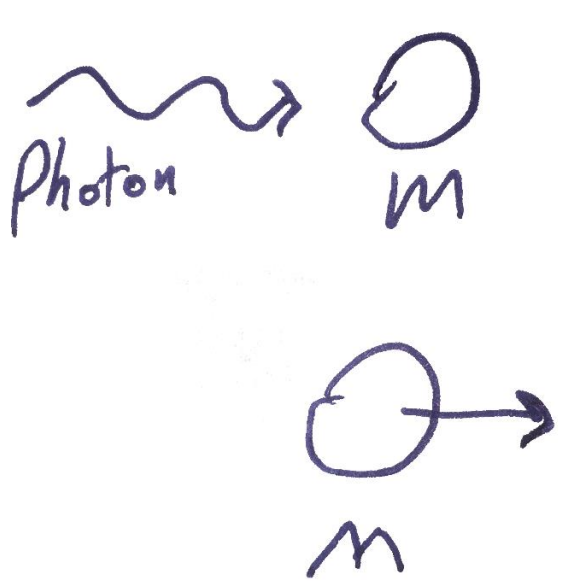 Photon
m
m